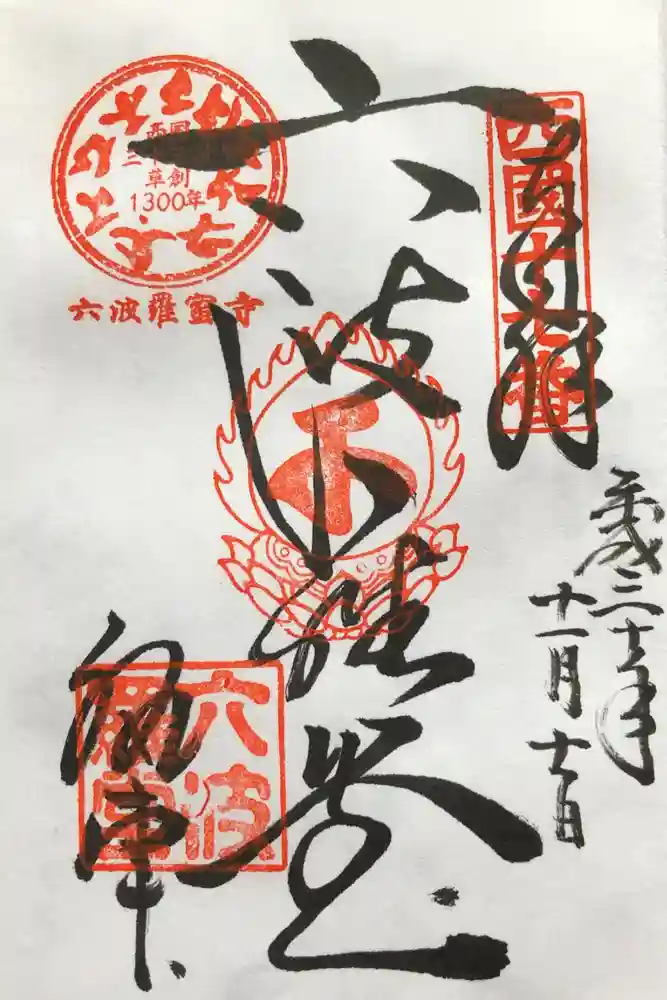 奉拝
西國十七番
平成三十年
十一月十七日
六波羅堂
西国
三十三所
草創
1300年
六波羅蜜寺
六波
羅蜜
執事